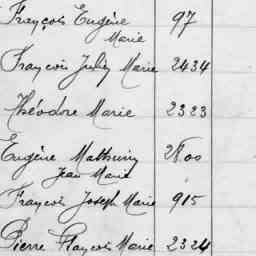 François Eugène 97
Marie
François Julien Marie 2434
Théodore Marie 2323
Eugène Mathurin 2800
Jean Marie
François Joseph Marie 915
Pierre François Marie 2324